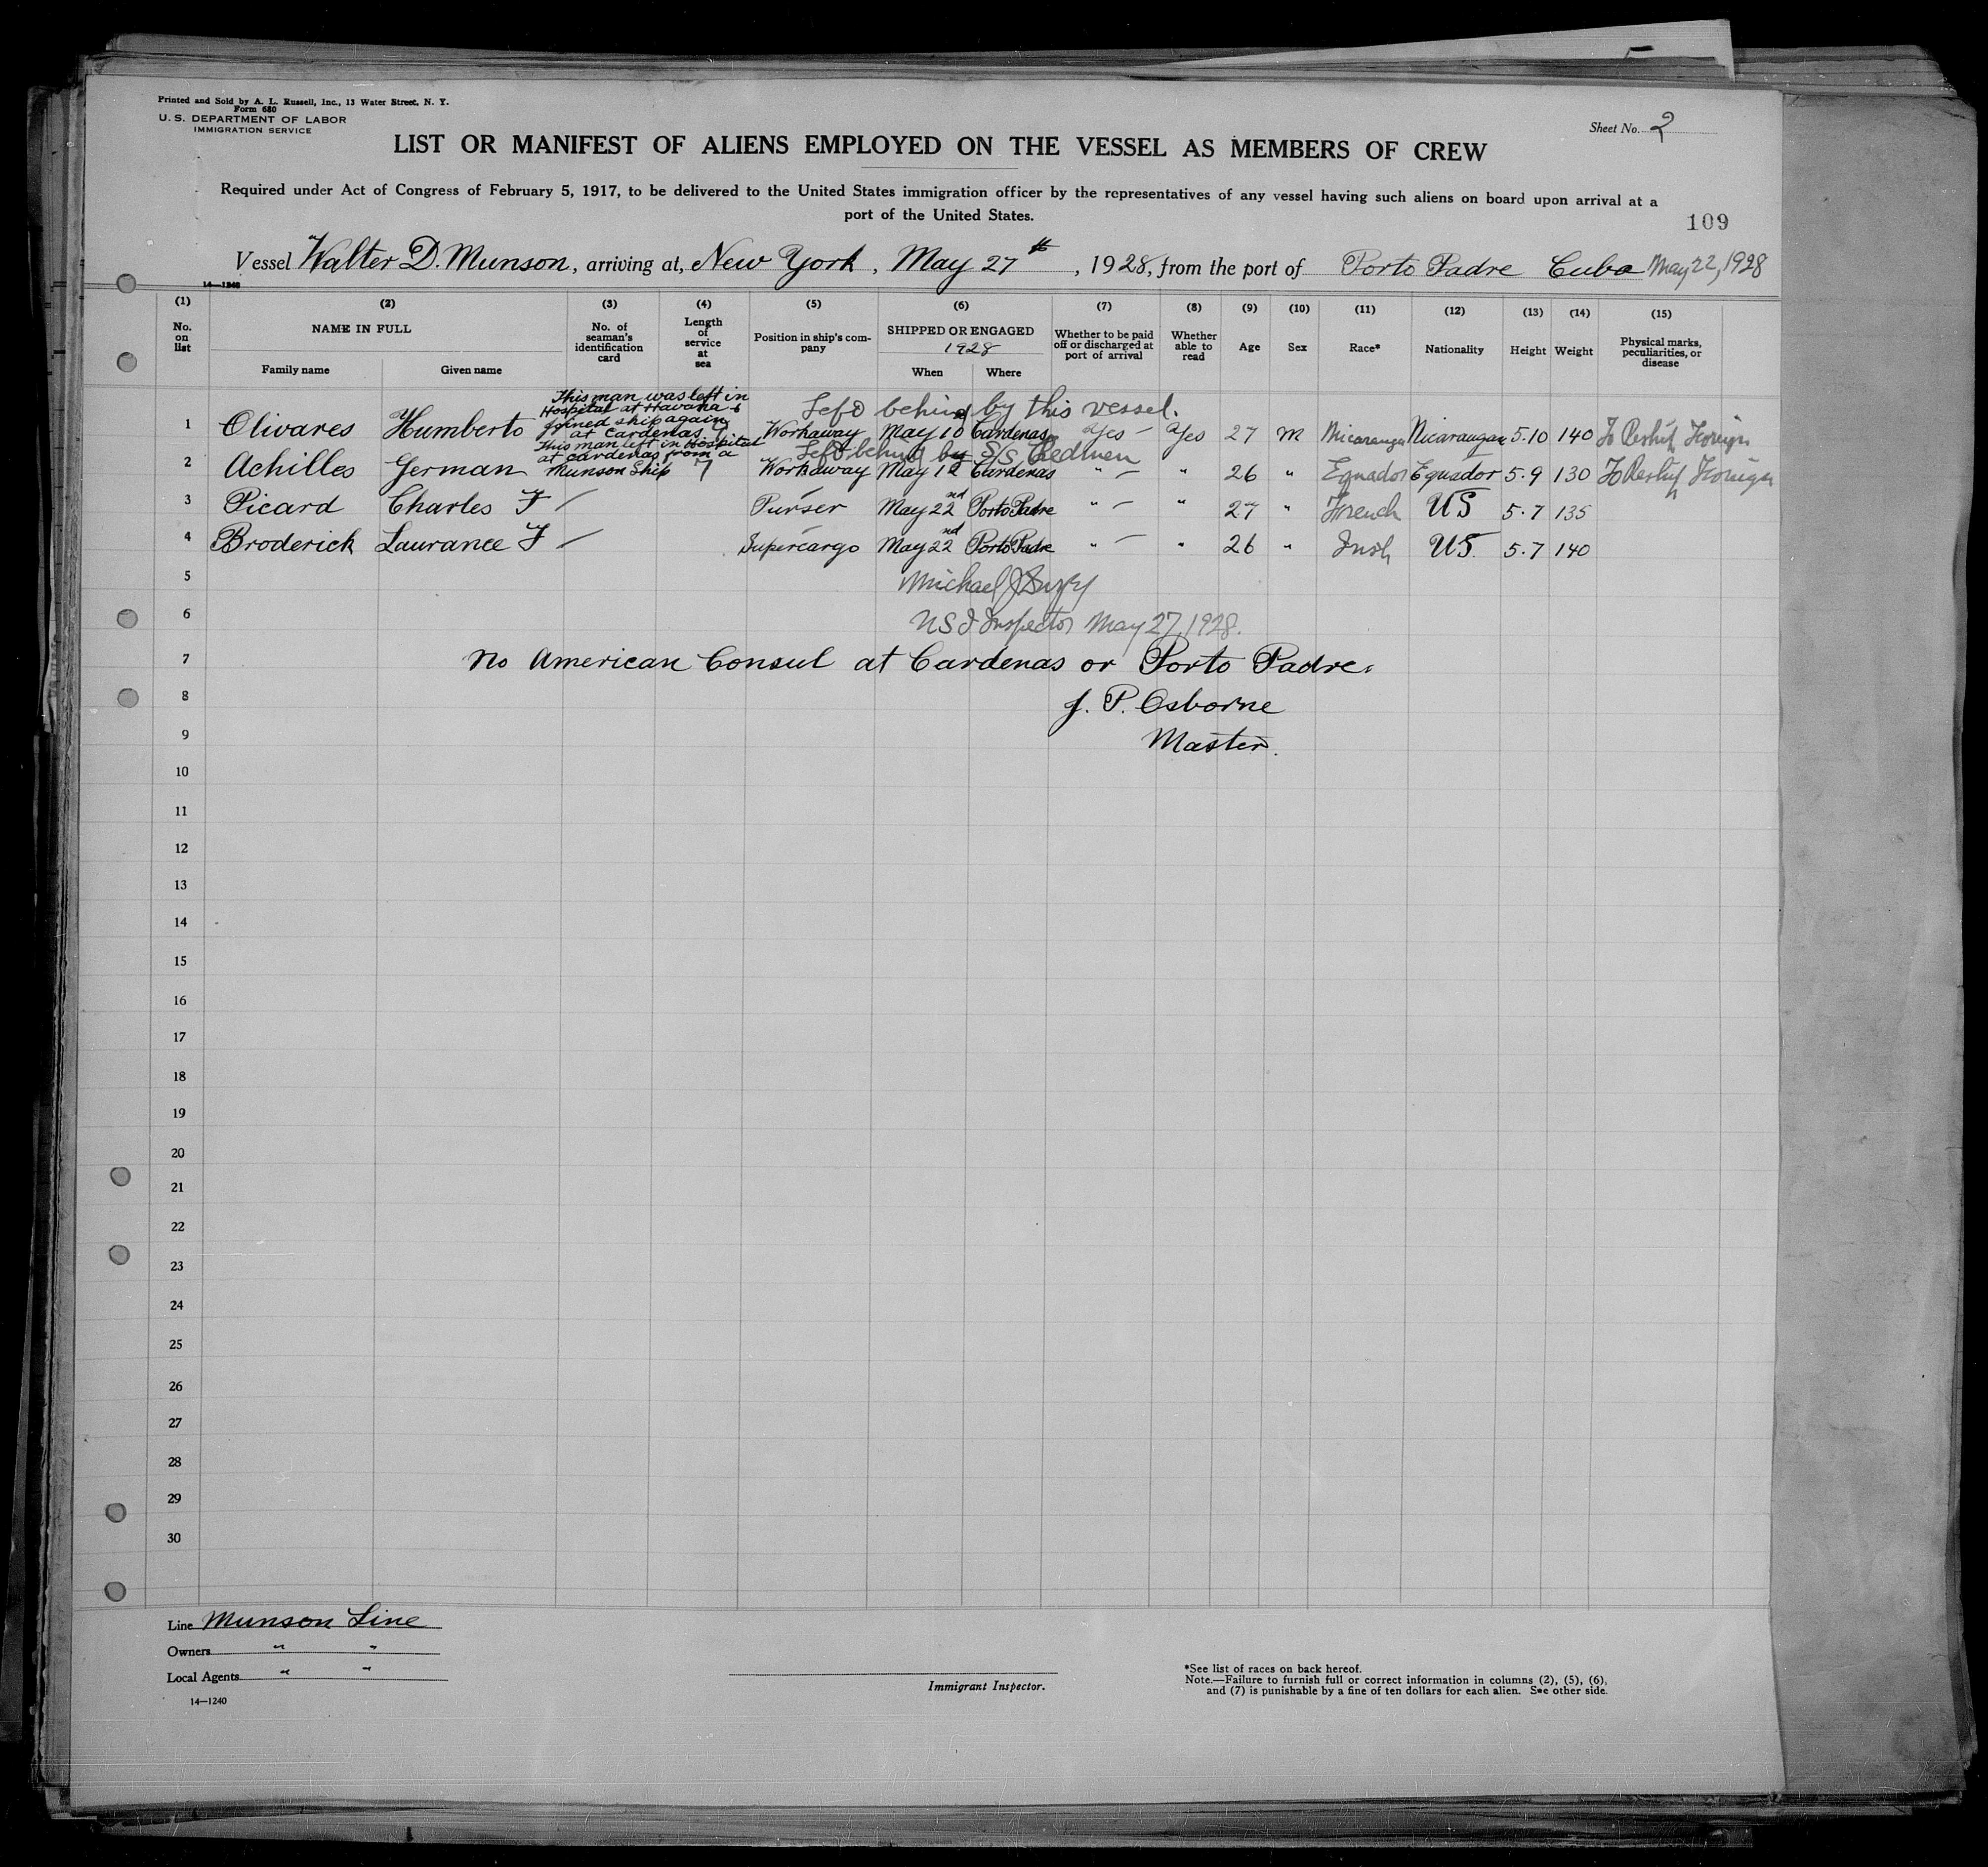 Printed and Sold by A. L. Russell, Inc., 13 Water Street, N. Y.
Form 680
U. S. DEPARTMENT OF LABOR
IMMIGRATION SERVICE
Sheet No. 2
LIST OR MANIFEST OF ALIENS EMPLOYED ON THE VESSEL AS MEMBERS OF CREW
Required under Act of Congress of February 5, 1917, to be delivered to the United States immigration officer by the representatives of any vessel having such aliens on board upon arrival at a
port of the United States.
109
Vessel Walter D. Munson, arriving at, New York, May 27th, 1928, from the port of Porto Padre Cuba May 22, 1928
14—1240
(1) (2) (3) (4) (5) (6) (7) (8) (9) (10) (11) (12) (13) (14) (15)
No. on list NAME IN FULL Family name Given name No. of seaman's identification card Length of service at sea Position in ship's company SHIPPED OR ENGAGED 1928 When Where Whether to be paid off or discharged at port of arrival Whether able to read Age Sex Race* Nationality Height Weight Physical marks, peculiarities, or disease
This man was left in
Hospital at Havana &
joined ship again
at Cardenas
Left behind by this vessel.
1 Olivares Humberto 7 Workaway May 10 Cardenas Yes – Yes 27 M Nicaraugan Nicaraugan 5.10 140 Foreign
This man left in Hospital
at Cardenas from a
Munson Ship
Left behind by S/S
2 Achilles German 7 Workaway May 12 Cardenas " – " 26 " Equador Equador 5.9 130 Foreign
3 Picard Charles F / Purser May 22nd Porto Padre " – " 27 " French US 5.7 135
4 Broderick Laurance F / Supercargo May 22nd Porto Padre " – " 26 " Irish US. 5.7 140
5 Michael J Duffy
6 US I Inspector May 27, 1928.
7 No American Consul at Cardenas or Porto Padre.
8 J. P. Osborne
9 Master.
10
11
12
13
14
15
16
17
18
19
20
21
22
23
24
25
26
27
28
29
30
Line Munson Line
Owners " "
Local Agents " "
14—1240
Immigrant Inspector.
*See list of races on back hereof.
Note.—Failure to furnish full or correct information in columns (2), (5), (6),
and (7) is punishable by a fine of ten dollars for each alien. See other side.